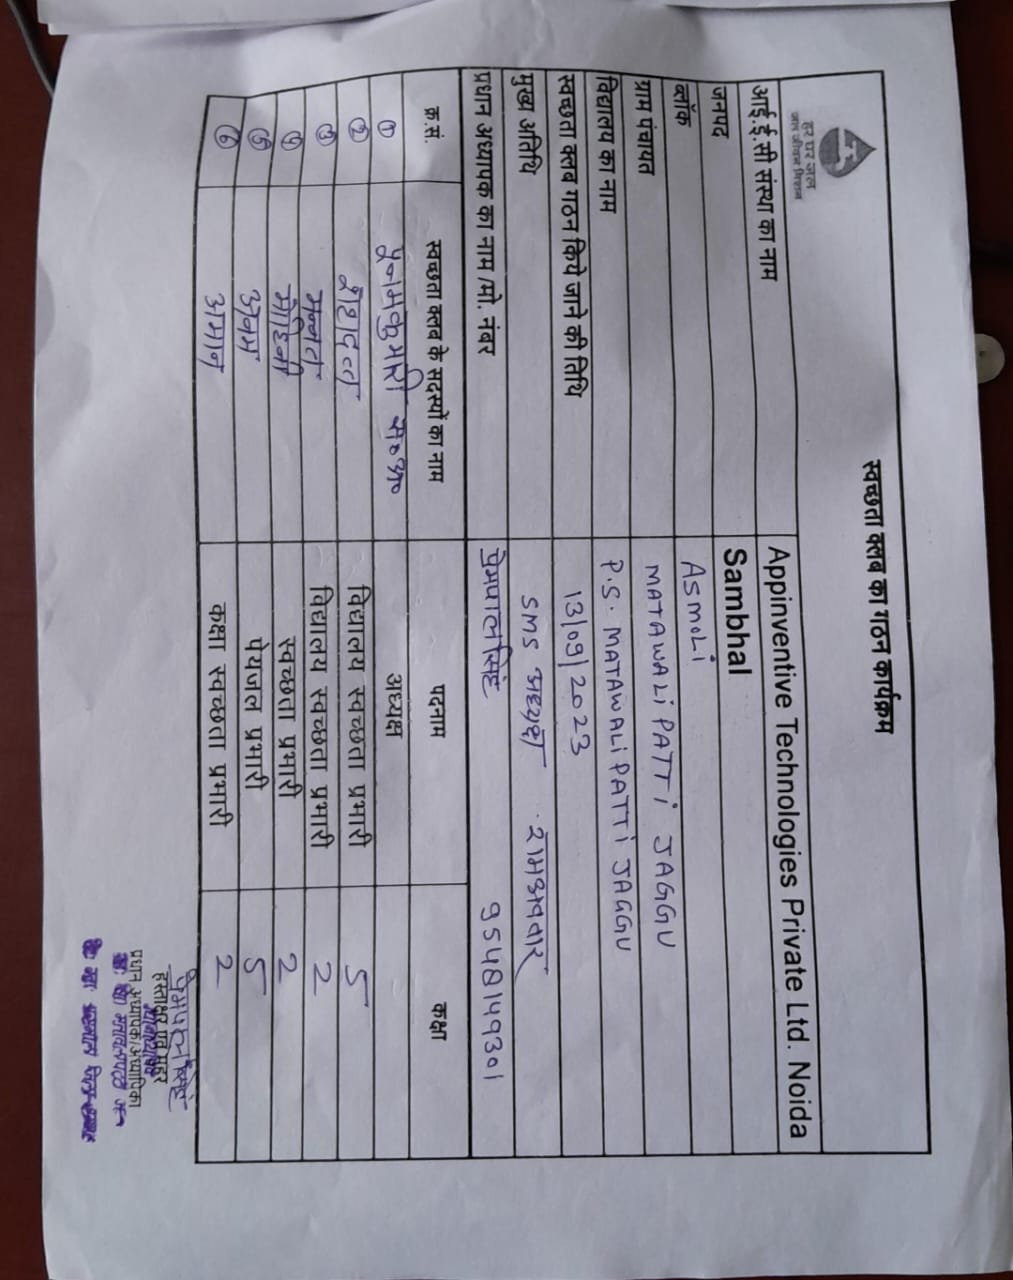 हर घर जल
जल जीवन मिशन
स्वच्छता क्लब का गठन कार्यक्रम
आई.ई.सी संस्था का नाम Appinventive Technologies Private Ltd. Noida
जनपद Sambhal
ब्लॉक ASMOLi
ग्राम पंचायत MATAWALi PATTi JAGGU
विद्यालय का नाम P.S. MATAWALi PATTi JAGGU
स्वच्छता क्लब गठन किये जाने की तिथि 13/09/2023
मुख्य अतिथि SMS अध्यक्ष रामअवतार
प्रधान अध्यापक का नाम /मो. नंबर प्रेमपाल सिंह 9548149301
क्र.सं. स्वच्छता क्लब के सदस्यों का नाम पदनाम कक्षा
① पूनम कुमारी स०अ० अध्यक्ष
② विद्यालय स्वच्छता प्रभारी 5
③ मन्नत विद्यालय स्वच्छता प्रभारी 2
④ मोहिनी स्वच्छता प्रभारी 2
⑤ अनम पेयजल प्रभारी 5
⑥ अमान कक्षा स्वच्छता प्रभारी 2
प्रेमपाल सिंह
हस्ताक्षर एवं मुहर
प्रधान अध्यापक/अध्यापिका